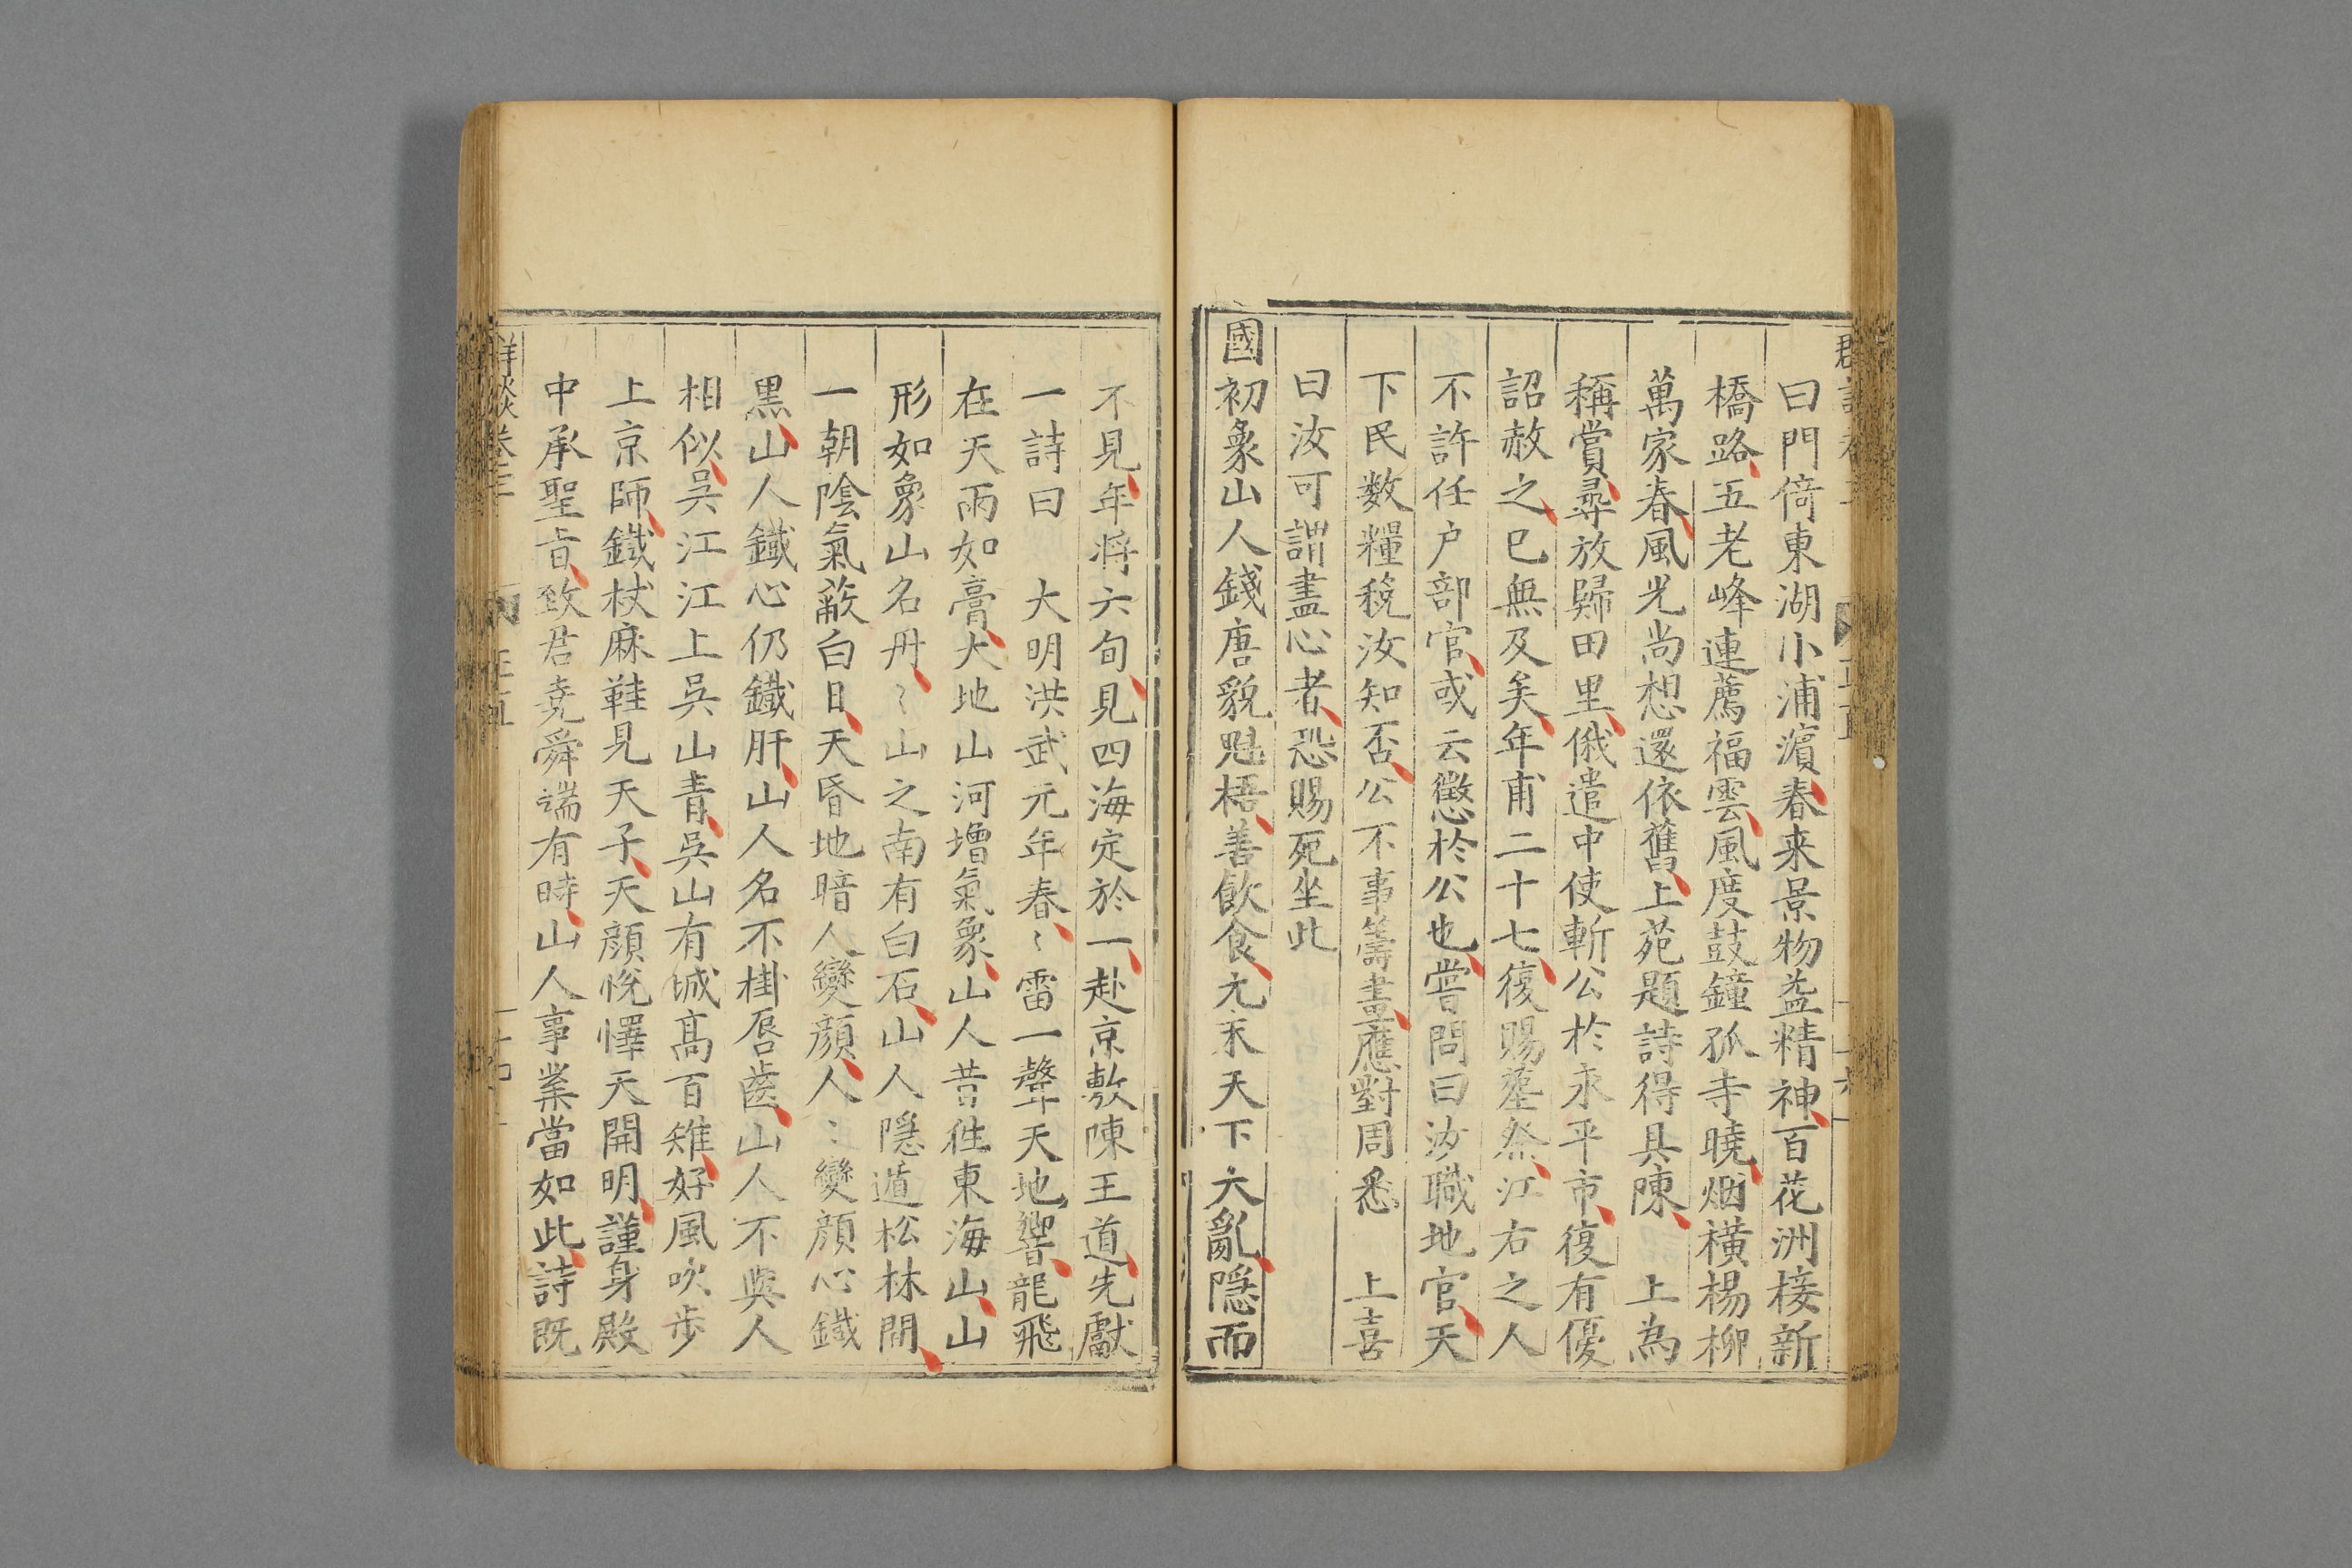 曰門倚東湖小浦濵春来景物益精神百花洲接新
橋路五老峰連薦福雲風度鼓鐘孤寺曉烟横楊柳
萬家春風光尚想還依舊上苑題詩得具陳 上為
稱賞尋放歸田里俄遣中使斬公於永平市復有優
詔赦之已無及矣年甫二十七復賜塟祭江右之人
不許任户部官或云懲於公也嘗問曰汝職地官天
下民数糧稅汝知否公不事籌畫應對周悉 上喜
曰汝可謂盡心者恐賜死坐此
國初象山人錢唐貌魁梧善飲食元末天下大亂隠而
不見年將六旬見四海定於一赴京敷陳王道先獻
一詩曰 大明洪武元年春〻雷一聲天地響龍飛
在天雨如膏大地山河增氣象山人昔徃東海山山
形如象山名丹〻山之南有白石山人隠遁松林間
一朝隂氣蔽白日天昏地暗人變顔人〻變顔心鐵
黒山人鐵心仍鐵肝山人名不掛唇齒山人不與人
相似吳江江上吳山青吳山有城髙百雉好風吹步
上京師鐵杖麻鞋見天子天顔悅懌天開明謹身殿
中承聖旨致君堯舜端有時山人事業當如此詩既
群談卷三